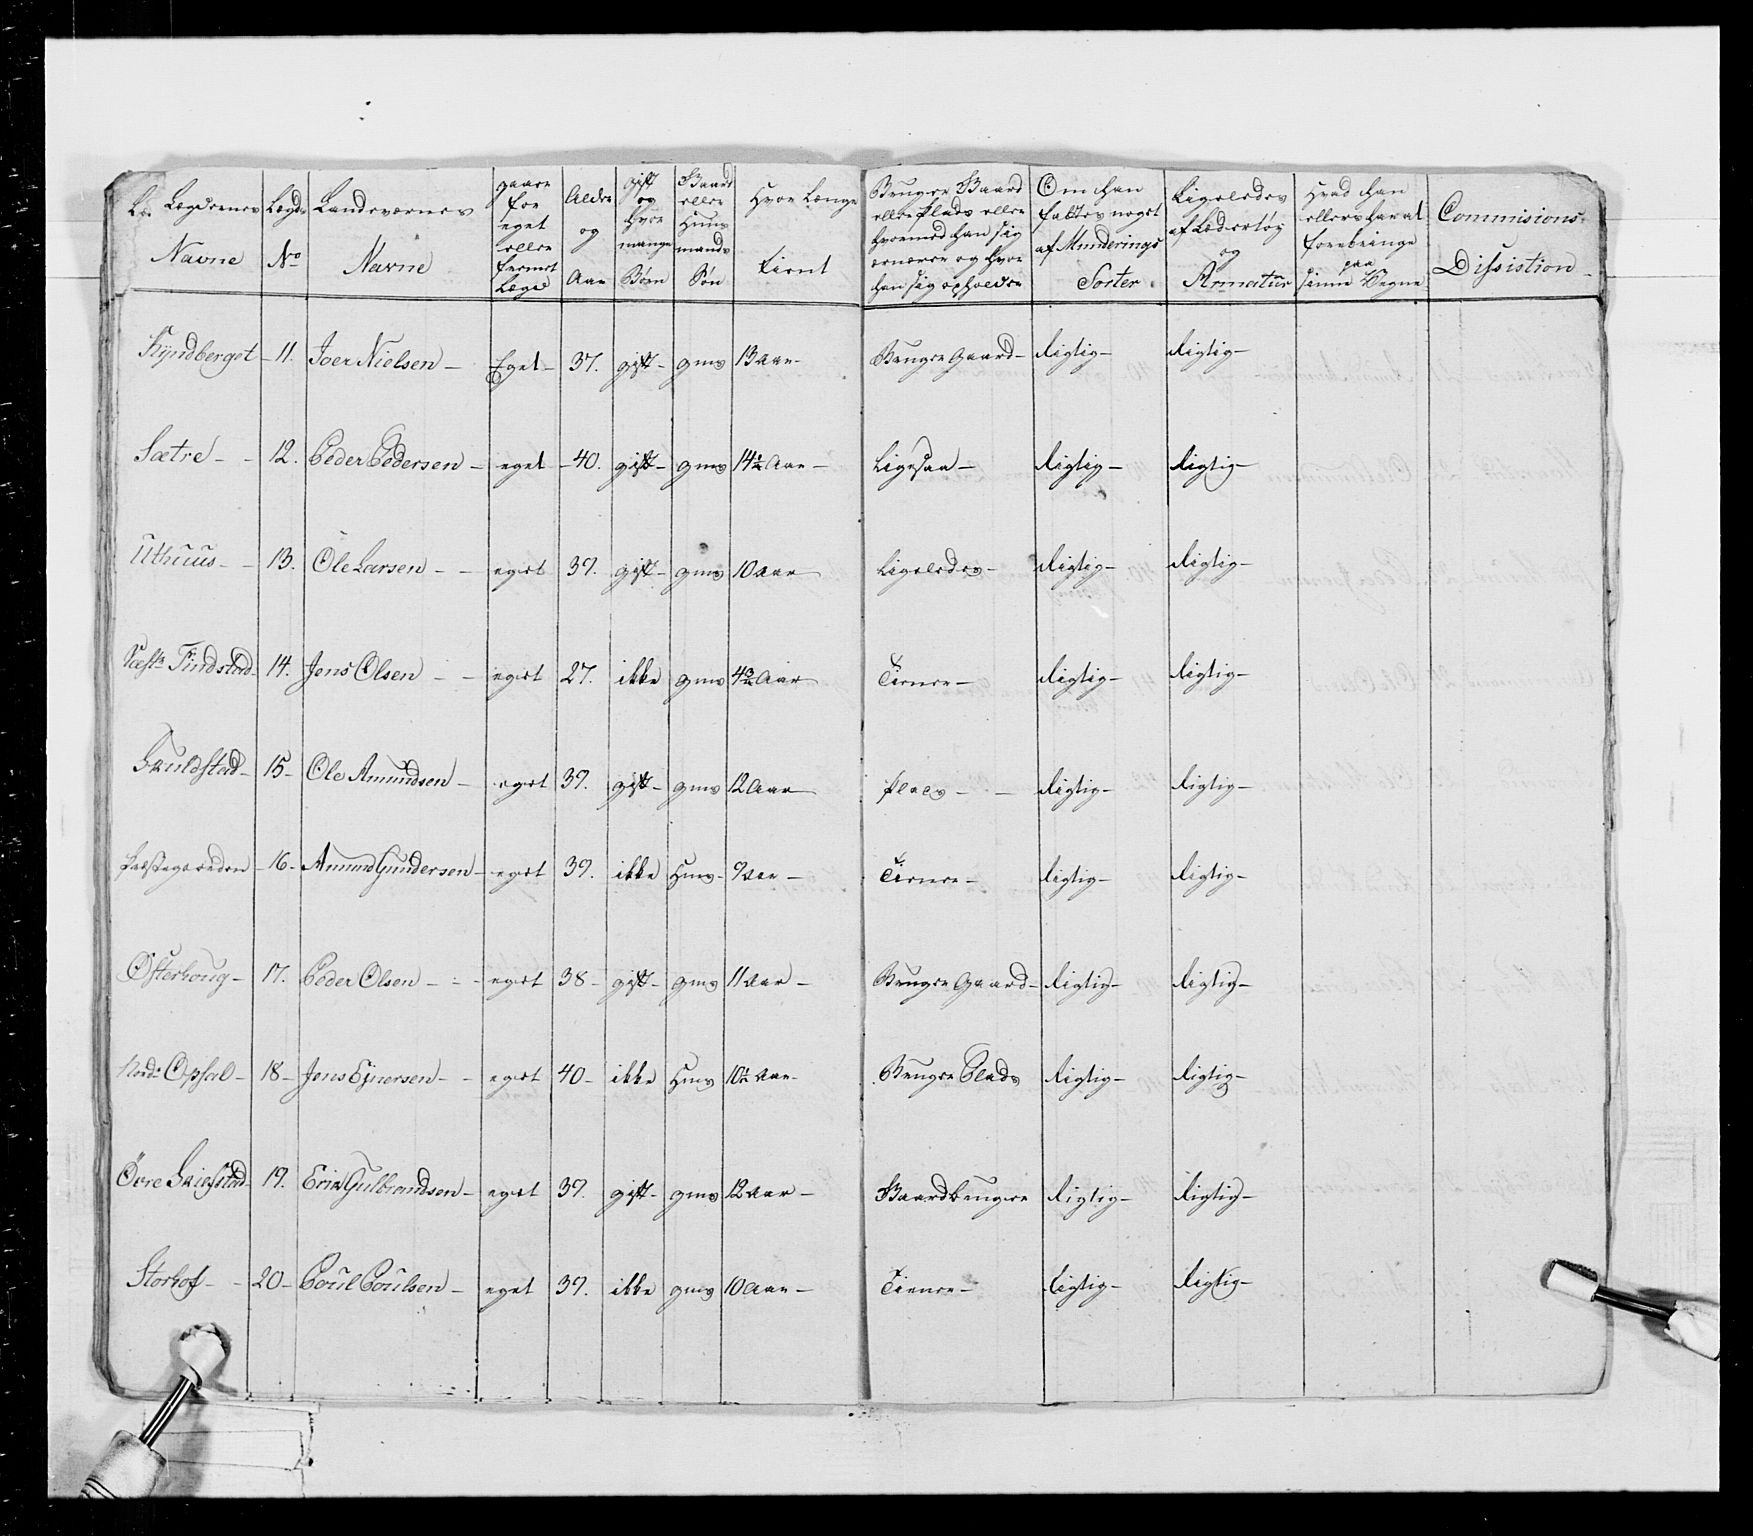 Lægdernes Navne | Lægds No | Landeværnes Navne | gaaer for eget eller fremet Lægd | Alder og Aar | gift og hvor mange Børn | Gaard eller Huus mands Søn | Hvor Længe tient | Bruger Gaard eller Plads eller hvormed han sig ernærer og hvor han sig opholder | Om han fattes noget af Munderings Sorter | Ligeledes af Ledertøy og Armatur | Hvad han ellers har at forebringe paa sinne Vegne | Commisions Dissistion
Kyndberget - 11. | Joer Nielsen - | Eget - | 37. | gift - | gms | 13 aar - | Bruger Gaard - | Rigtig - | Rigtig -
Sætre - - | 12. | Peder Pedersen - | eget - | 40. | gift - | gms | 14½ Aar - | Ligesaa - | Rigtig - | Rigtig -
Uthuus - - | 13. | Ole Larsen - - | eget | 39. | gift - | gms | 10 aar | Ligeledes - | Rigtig - | Rigtig -
Væst: Findstad - | 14. | Jens Olsen - - | eget | 27. | ikke | gms | Aar | Tiener - | Rigtig - | Rigtig -
- | 15 - | Ole Amundsen - | eget | 39. | gift - | gms | 12 Aar | Plads - - | Rigtig - | Rigtig -
Præstegaarden - | 16 - | Amund Gundersen - | eget | 39. | ikke | Hms - | 9 aar - | Tiener - | Rigtig - | Rigtig -
Østerhoug - | 17. | Peder Olsen - - - | eget | 38 - | gift - | gms | 11 aar - | Bruger Gaard - | Rigtig - | Rigtig -
Nord: Opsal - | 18 - | Jens Ejnersen - - | eget | 40 - | ikke | Hms | 10½ aar - | Bruger Plads | Rigtig - | Rigtig -
Øvre Griefstad - | 19. | Erik Gulbrandsen - | eget | 39. | gift - | gms | 12 aar - | Gaardbruger | Rigtig - | Rigtig -
Storhof - - | 20 - | Poul Poulsen - | eget | 39. | ikke | gms | 10 Aar - | Tiener - | Rigtig - | Rigtig -